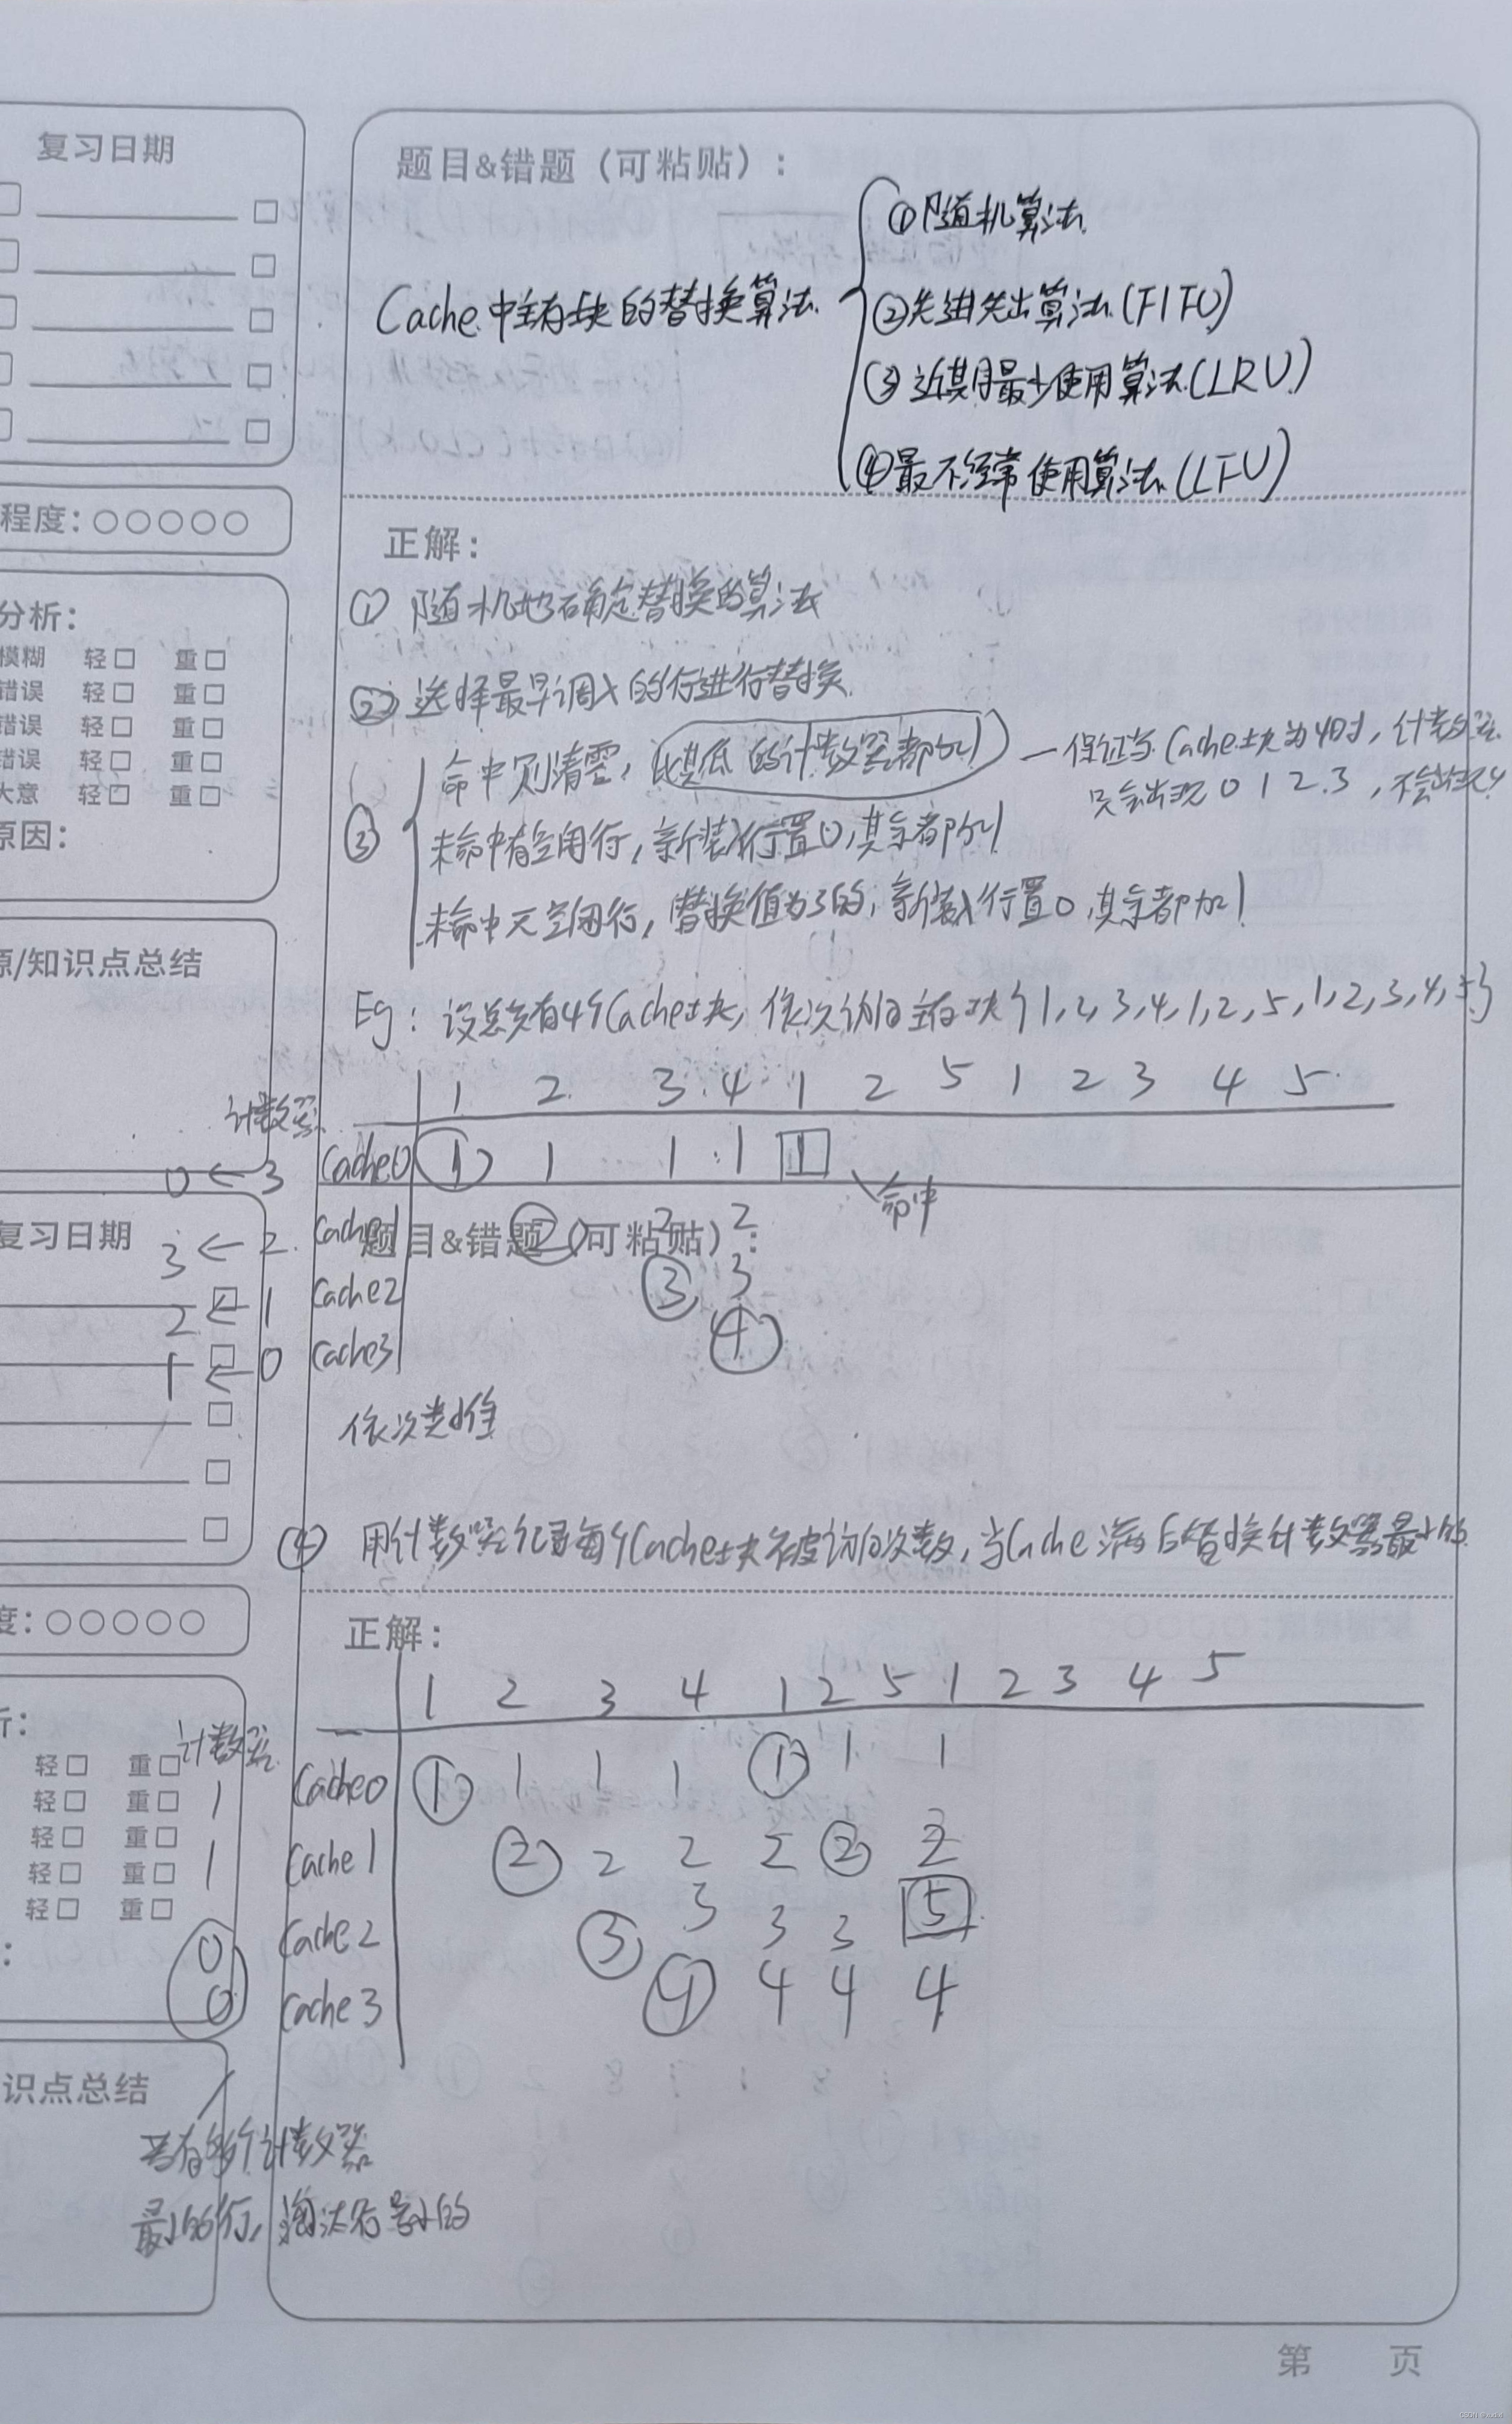 复习日期
题目&错题（可粘贴）：
Cache中主存块的替换算法
①随机算法
②先进先出算法(FIFO)
③近期最少使用算法(LRU)
④最不经常使用算法(LFU)
程度：
正解：
①随机地确定替换的算法
②选择最早调入的行进行替换
分析：
模糊 轻 重
错误 轻 重
错误 轻 重
错误 轻 重
大意 轻 重
原因：
③
命中则清零，比其低的计数器都加1 — 保证当Cache块为4时，计数器
只会出现0 1 2 3，不会出现4
未命中有空闲行，新装入行置0，其余都加1
未命中无空闲行，替换值为3的，新装入行置0，其余都加1
源/知识点总结
Eg：设总共有4个Cache块，依次访问主存块{1,2,3,4,1,2,5,1,2,3,4,5}
1 2 3 4 1 2 5 1 2 3 4 5
计数器
0←3 Cache0 1 1 1 1 1
命中
3←2 Cache1 2 2 2
复习日期
题目&错题（可粘贴）：
2←1 Cache2 3 3
1←0 Cache3 4
依次类推
④用计数器记录每个Cache块被访问次数，当Cache满后替换计数器最小的
度：
正解：
1 2 3 4 1 2 5 1 2 3 4 5
计数器
1 Cache0 1 1 1 1 1 1 1
1 Cache1 2 2 2 2 2 2
0 Cache2 3 3 3 3 5
0 Cache3 4 4 4 4
析：
轻 重
轻 重
轻 重
轻 重
轻 重
：
识点总结
若有多个计数器
最小的行，淘汰行号小的
第 页